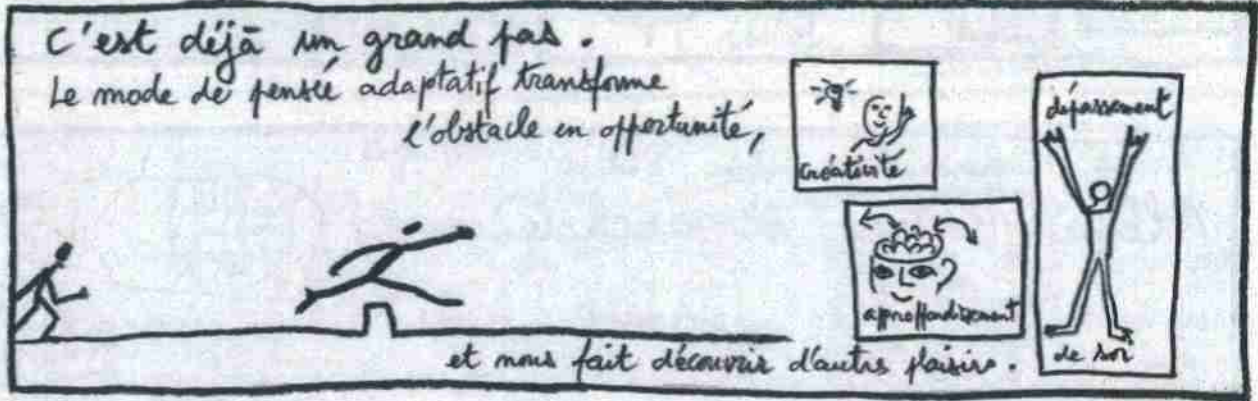 C'est déjà un grand pas.
Le mode de pensée adaptatif transforme
l'obstacle en opportunité,
créativité
dépassement
de soi
approffondissement
et nous fait découvrir d'autres plaisirs.